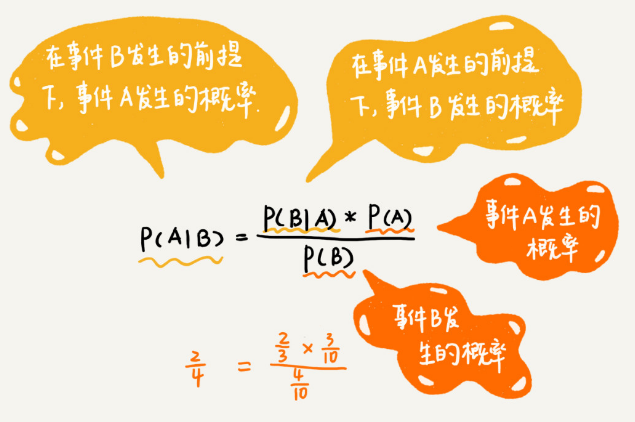 在事件B发生的前提
下,事件A发生的概率.
在事件A发生的前提
下,事件B发生的概率
P(A|B) = P(B|A) * P(A) / P(B)
事件A发生的
概率
事件B发
生的概率
2/4 = (2/3 × 3/10) / (4/10)